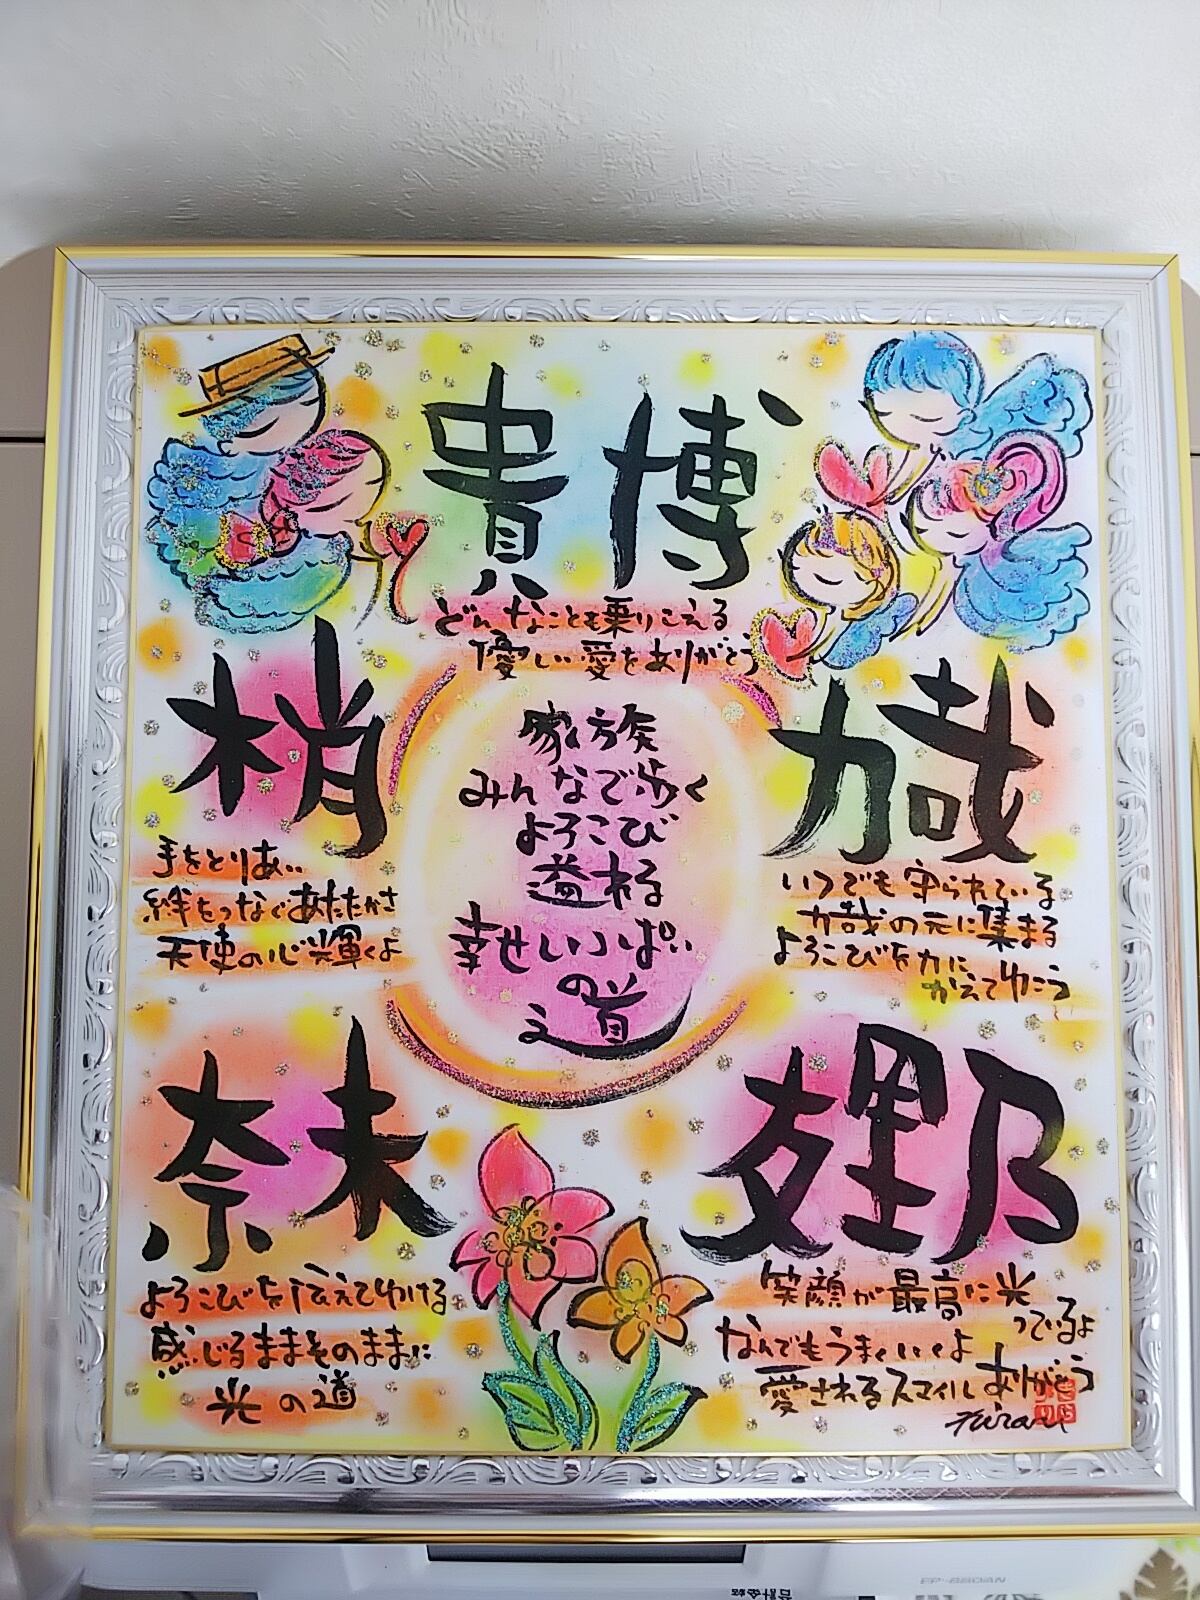 貴博
どんなことも乗りこえる
優しい愛をありがとう
梢
手をとりあい
絆をつなぐあたたかさ
天使の心輝くよ
家族
みんなで歩く
よろこび
溢れる
幸せいっぱい
の道
力哉
いつでも守られている
力哉の元に集まる
よろこびを力に
かえてゆこう
奈未
よろこびを伝えてゆける
感じるままそのままに
光の道
友里乃
笑顔が最高に光
っているよ
なんでもうまくいくよ
愛されるスマイルありがとう